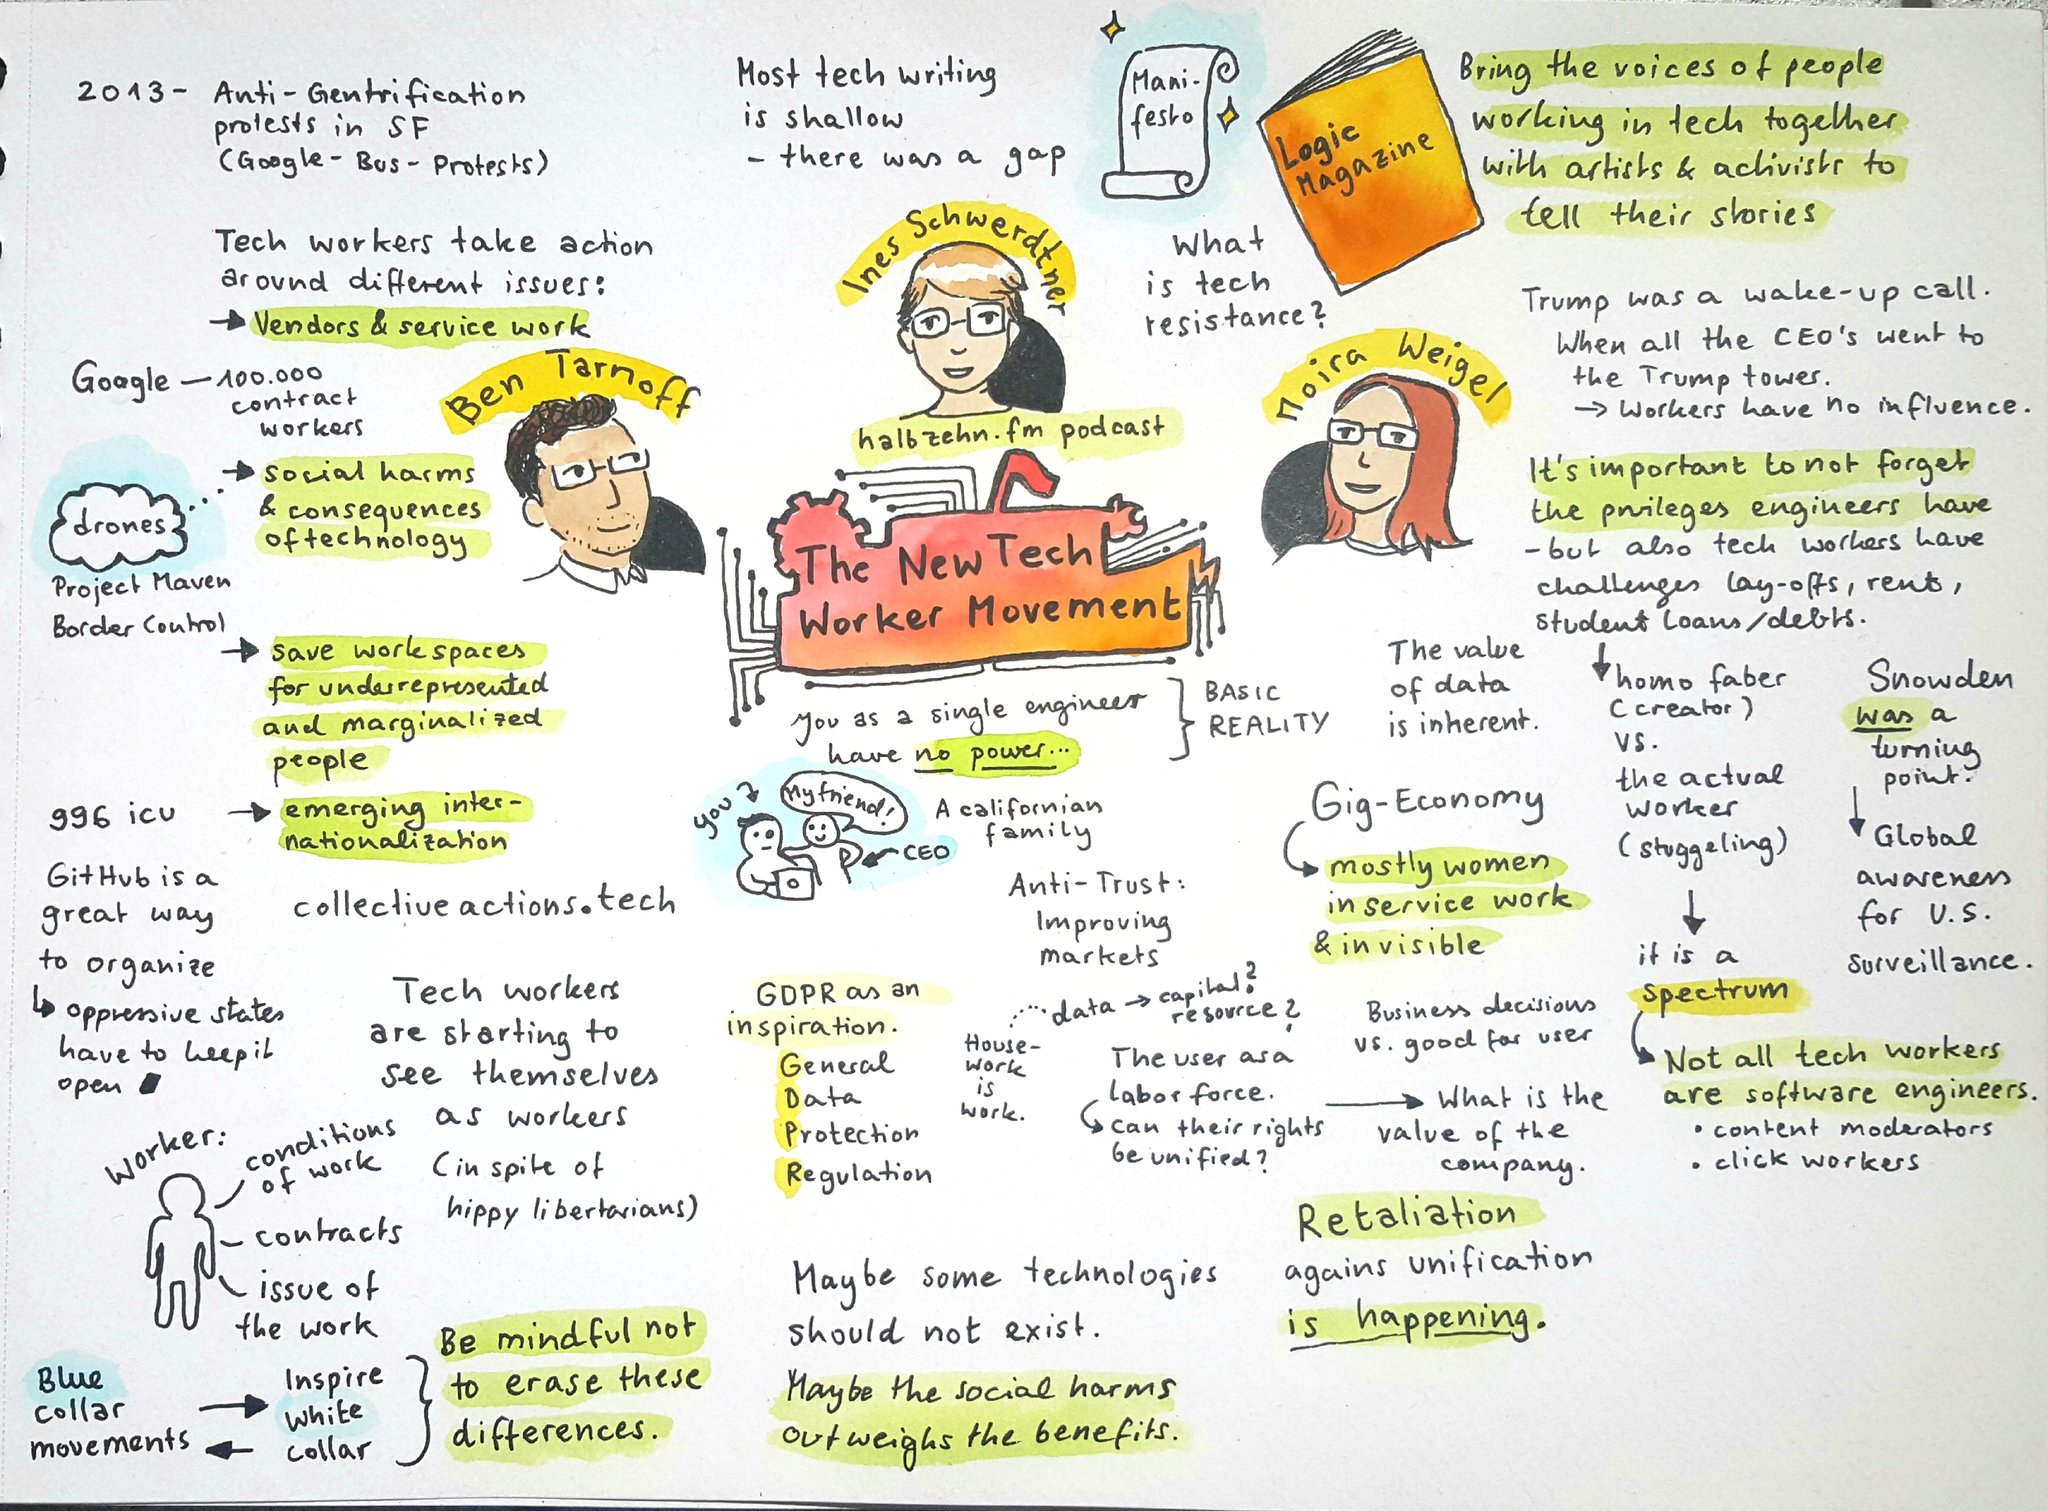 2013 - Anti-Gentrification
protests in SF
(Google-Bus-Protests)
Tech workers take action
around different issues:
→ Vendors & service work
Google — 100.000
contract
workers
→ social harms
& consequences
of technology
drones
Project Maven
Border Control
→ save workspaces
for underrepresented
and marginalized
people
996 icu → emerging inter-
nationalization
GitHub is a
great way
to organize
↳ oppressive states
have to keep it
open
collectiveactions.tech
Tech workers
are starting to
see themselves
as workers
(in spite of
hippy libertarians)
Worker:
conditions
of work
contracts
issue of
the work
Blue
collar
movements
Inspire
white
collar
Be mindful not
to erase these
differences.
Ben Tarnoff
Most tech writing
is shallow
- there was a gap
Mani-
festo
Logic
Magazine
Bring the voices of people
working in tech together
with artists & activists to
tell their stories
Ines Schwerdtner
halbzehn.fm podcast
What
is tech
resistance?
Moira Weigel
The New Tech
Worker Movement
you as a single engineer
have no power...
BASIC
REALITY
you
My friend!
CEO
A californian
family
Anti-Trust:
Improving
markets
GDPR as an
inspiration.
General
Data
Protection
Regulation
House-
work
is
work.
data → capital?
resource?
The user as a
labor force.
↳ can their rights
be unified?
→ What is the
value of the
company.
Maybe some technologies
should not exist.
Maybe the social harms
outweighs the benefits.
Trump was a wake-up call.
When all the CEO's went to
the Trump tower.
→ Workers have no influence.
It's important to not forget
the privileges engineers have
- but also tech workers have
challenges lay-offs, rent,
student loans/debts.
The value
of data
is inherent.
Gig-Economy
mostly women
in service work
& invisible
Business decisions
vs. good for user
homo faber
(creator)
vs.
the actual
worker
(stuggeling)
it is a
spectrum
Not all tech workers
are software engineers.
• content moderators
• click workers
Snowden
was a
turning
point.
Global
awareness
for U.S.
surveillance.
Retaliation
agains unification
is happening.